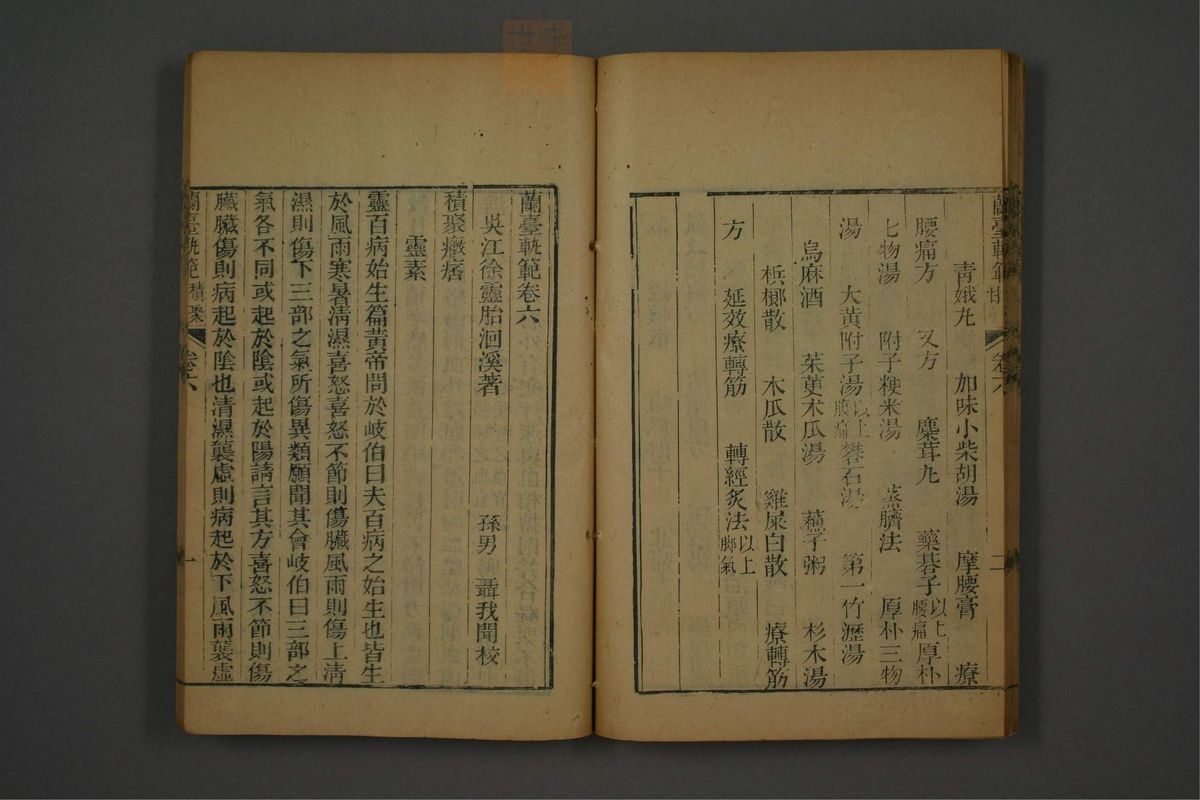 蘭臺軌範目 卷六 二
青娥丸 加味小柴胡湯 摩腰膏 療
腰痛方 又方 麋茸丸 藥棊子 以上腰痛 厚朴
七物湯 附子粳米湯 蒸臍法 厚朴三物
湯 大黃附子湯 以上腹痛 礬石湯 第一竹瀝湯
烏麻酒 茱萸木瓜湯 蘇子粥 杉木湯
檳榔散 木瓜散 雞屎白散 療轉筋
方 延效療轉筋 轉經炙法 以上脚氣
蘭臺軌範卷六
吳江徐靈胎洄溪著 孫男 聶我聞校
積聚癥痞
靈素
靈百病始生篇黃帝問於岐伯曰夫百病之始生也皆生
於風雨寒暑清濕喜怒喜怒不節則傷臟風雨則傷上清
濕則傷下三部之氣所傷異類願聞其會岐伯曰三部之
氣各不同或起於陰或起於陽請言其方喜怒不節則傷
臟臟傷則病起於陰也清濕襲虛則病起於下風雨襲虛
蘭臺軌範 積聚 卷六 一